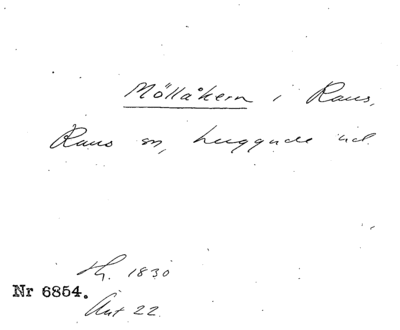 Möllåkern i Raus,
Raus sn, Luggude hd.
Th. 1830
Nr 6854.
Ant 22.